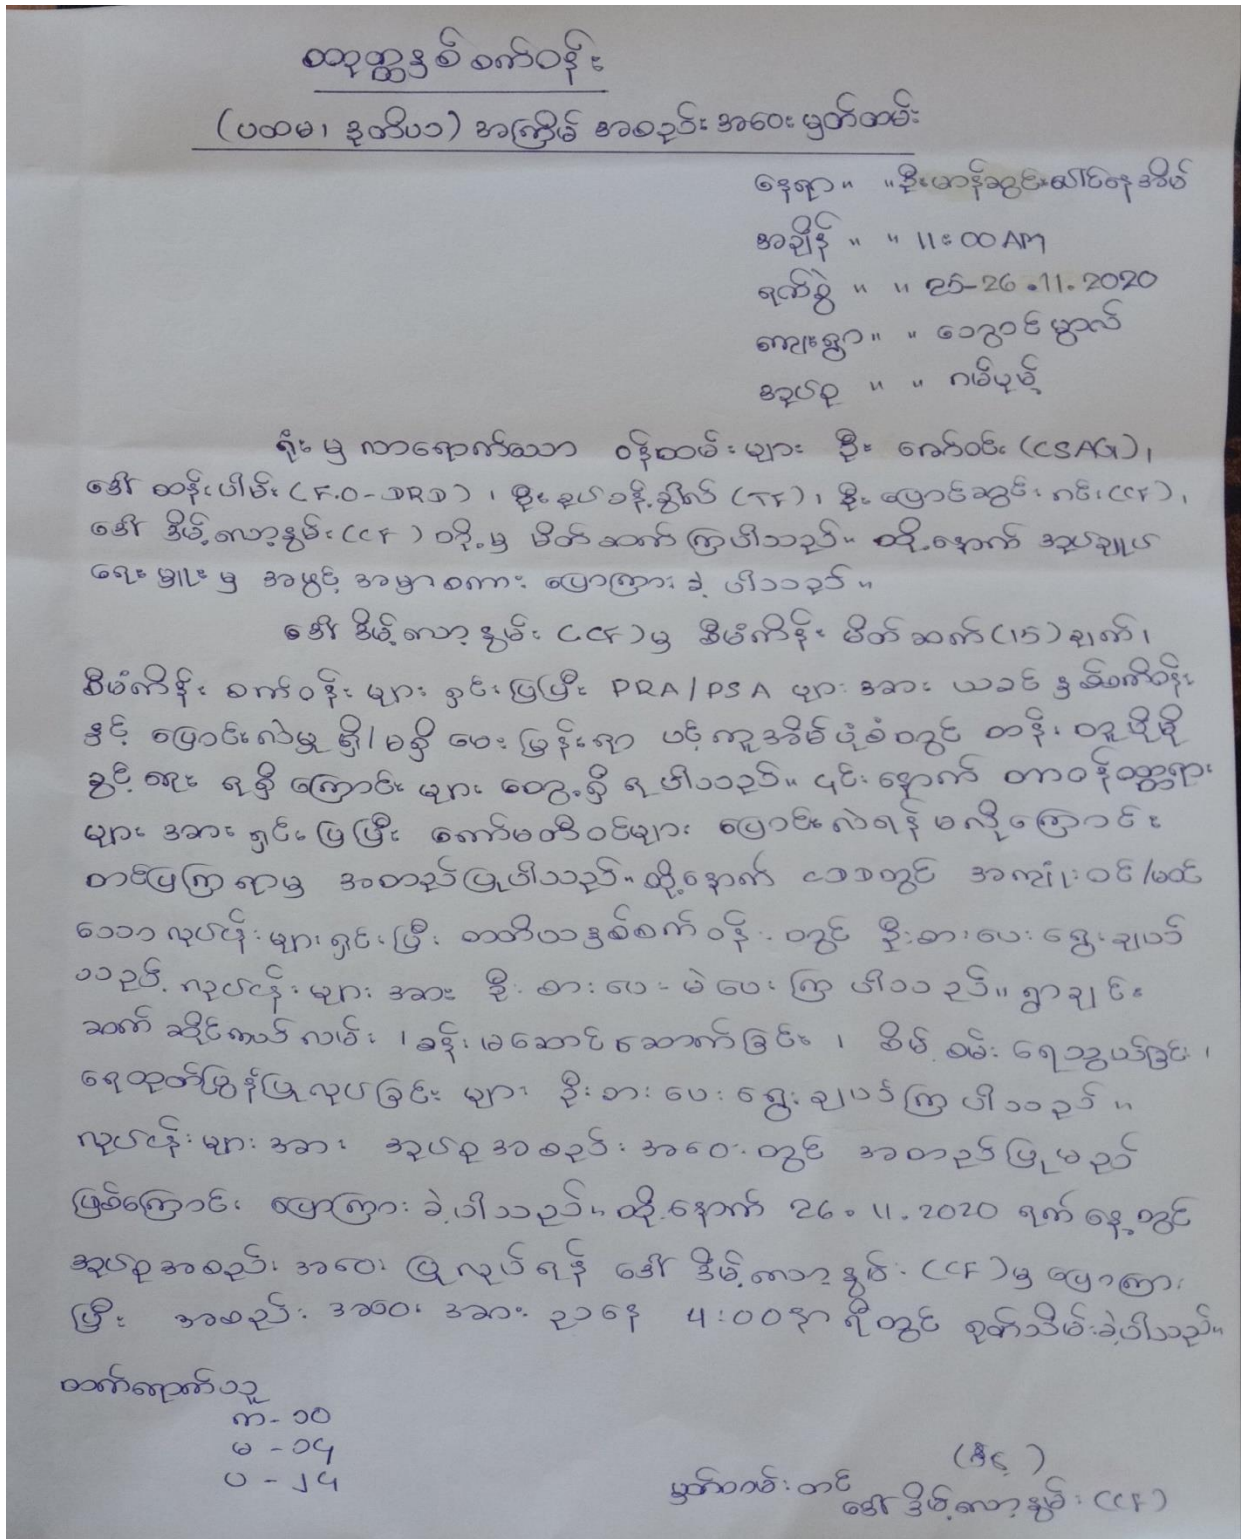 စတုတ္ထနှစ်စက်ဝန်း
(ပထမ၊ ဒုတိယ) အကြိမ် အစည်းအဝေးမှတ်တမ်း
နေရာ။ ။ဦးမာန်ဆွင်းခေါင်နေအိမ်
အချိန် ။ ။ 11:00 AM
ရက်စွဲ ။ ။ 25-26.11.2020
ကျေးရွာ။ ။ သေွာင်မွာလ်
အုပ်စု ။ ။ ဂမ်ပုမ့်
ရုံးမှ လာရောက်သော ဝန်ထမ်းများ ဦး ဇော်ဝင်း (CSAG)၊
ဒေါ် ထန်းပါမ်း (F.O-DRD) ၊ ဦးနုပ်ခန့်ခွါလ် (TF)၊ ဦး ပြောင်ဆွင်းဂင်း (CF)၊
ဒေါ် ဒိမ့်လော့နွမ်း (CF) တို့မှ မိတ်ဆက်ကြပါသည်။ ထို့နောက် အုပ်ချုပ်
ရေးမှူးမှ အဖွင့် အမှာစကား ပြောကြားခဲ့ပါသည်။
ဒေါ် ဒိမ့်လော့နွမ်း (CF) မှ စီမံကိန်းမိတ်ဆက် (15) ချက်၊
စီမံကိန်းစက်ဝန်းများ ရှင်းပြပြီး PRA/PSA များအား ယခင် နှစ်စက်ဝန်း
နှင့် ပြောင်းလဲမှု ရှိ/မရှိ မေးမြန်းရာ ပင့်ကူအိမ်ပုံစံတွင် တန်းတူပိုမို
ခွင့်ရေး ရရှိကြောင်းများ တွေ့ရှိရပါသည်။ ၎င်းနောက် တာဝန်ဝတ္တရား
များအား ရှင်းပြပြီး ကော်မတီဝင်များ ပြောင်းလဲရန် မလိုကြောင်း
တင်ပြကြရာမှ အတည်ပြုပါသည်။ ထို့နောက် CDD တွင် အကျုံးဝင်/မဝင်
သောလုပ်ငန်းများရှင်းပြီး စတုတ္ထနှစ်စက်ဝန်းတွင် ဦးစားပေးရွေးချယ်
သည့် လုပ်ငန်းများအား ဦးစားပေးမဲပေးကြပါသည်။ ရွာချင်း
ဆက် ဆိုင်ကယ်လမ်း ၊ ခန်းမဆောင်ဆောက်ခြင်း ၊ စိမ့်စမ်းရေသွယ်ခြင်း ၊
ရေထုတ်မြွန်ပြုလုပ်ခြင်းများ ဦးစားပေးရွေးချယ်ကြပါသည် ။
လုပ်ငန်းများအား အုပ်စုအစည်းအဝေးတွင် အတည်ပြုမည်
ဖြစ်ကြောင်း ပြောကြားခဲ့ပါသည်။ ထို့နောက် 26.11.2020 ရက်နေ့တွင်
အုပ်စုအစည်းအဝေး ပြုလုပ်ရန် ဒေါ် ဒိမ့်လော့နွမ်း (CF) မှ ပြောကြား
ပြီး အစည်းအဝေးအား ညနေ 4:00 နာရီတွင် ရုတ်သိမ်းခဲ့ပါသည်။
တက်ရောက်သူ
ကျ-၁၀
မ - ၁၄
ပ - ၂၄
မှတ်တမ်းတင်
ဒေါ် ဒိမ့်လော့နွမ်း (CF)